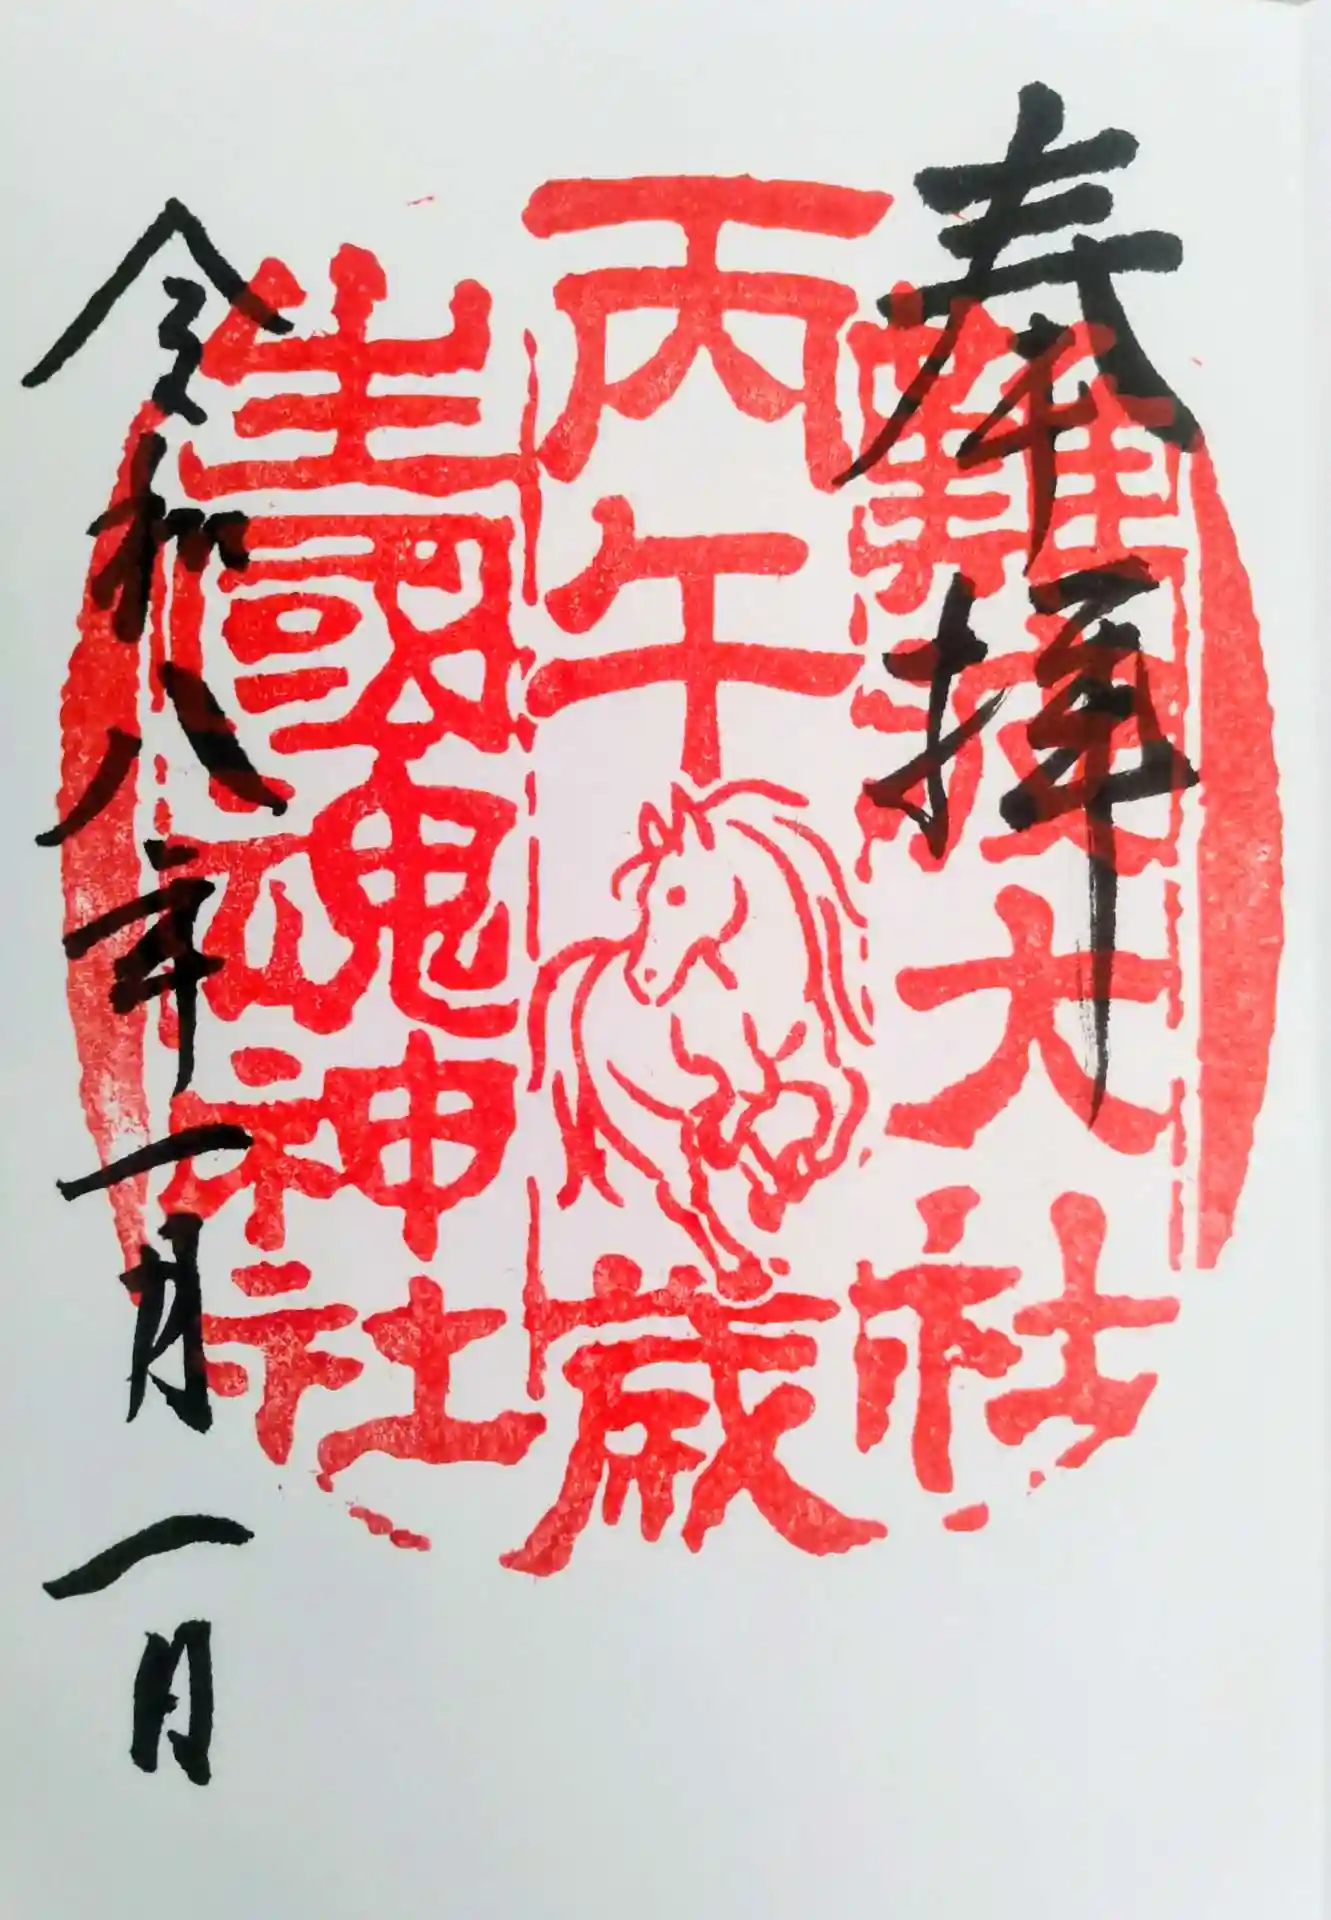 奉拝
難波大社
丙午歳
生國魂神社
令和八年一月一日